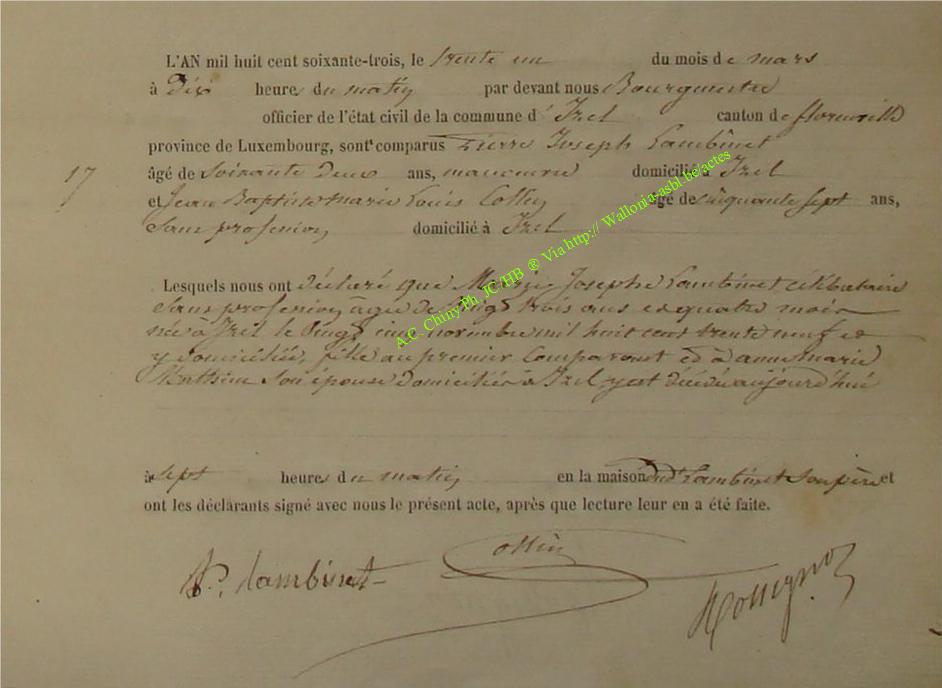 L'AN mil huit cent soixante-trois, le trente un du mois de mars
à Dix heures du matin par devant nous Bourgmestre
officier de l'état civil de la commune d' Izel canton de florenville
province de Luxembourg, sont comparus Pierre Joseph Lambinet
17 âgé de Soixante Deux ans, manoeuvre domicilié à Izel
et Jean Baptiste Marie Louis Collin âgé de cinquante sept ans,
Sans profession domicilié à Izel
Lesquels nous ont Déclaré que Joseph Lambinet célibataire
Sans profession âgée de Vingt trois ans et quatre mois
née à Izel le Vingt cinq novembre mil huit cent trente neuf et
y domiciliée, fille au premier Comparant et à anne marie
Son épouse Domiciliés à Izel, y est Décédée aujourd'hui
à sept heures du matin en la maison dud Lambinet Son père et
ont les déclarants signé avec nous le présent acte, après que lecture leur en a été faite.
P. Lambinet Collin
A.C. Chiny Ph. JC/HB ® Via http:// Wallonia-asbl.be/actes